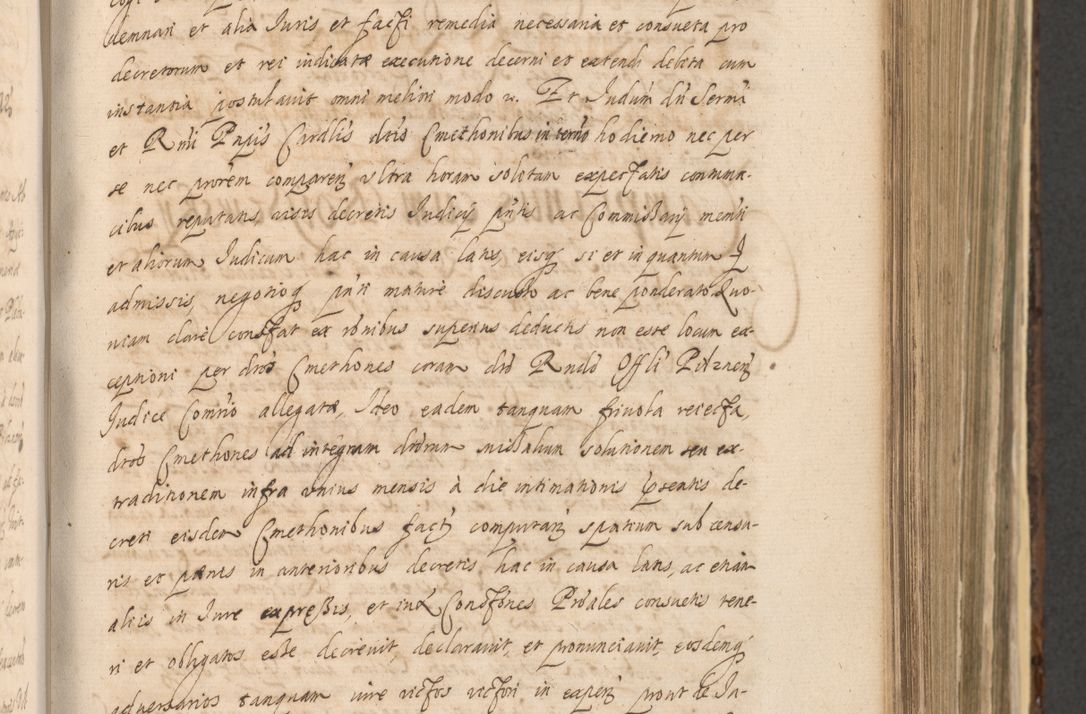 demnari et alia Juris et facti remedia necessaria et consueta pro
decretorum et rei iudicatæ executione decerni et extendi debita cum
instantia postulauit omni meliori modo &. Et Judiũ dñ Sermi
et Rmi Prñis Cardlis dctõ Cmethonibus in termo hodierno nec per
se nec prõrem comparen̄ vltra horam solitam expectatis contuma-
cibus reputatis visis decretis Judicij pñtis ac Commissarij menti
et aliorum Judicum hac in causa latis, eisq; si et in quantum
admissis, negotioq; pñti maturè discusso ac bene ponderato Quo-
niam clarè constat ex rõnibus superius deductis non esse locum ex-
ceptioni per dctos Cmethones coram dctõ Rndo Offli Pilznen̄
Judice Comrio allegatæ, Ideo eadem tanquam friuola reiecta,
dctos Cmethones ad integram dctorum missalium solutionem seu ex-
traditionem infra vnius mensis à die intimationis præsentis de-
creti eisdem Cmethonibus fact̄ computan̄ spatium sub censu-
ris et pænis in anterioribus decretis hac in causa latis, ac etiam
aliis in Jure expressis, et in Constõnes Prõales consuetis tene-
ri et obligatos esse decreuit, declarauit, et pronunciauit, eosdemq;
aduersarios tanquam iure victos victori in expen̄ pront de Ju-